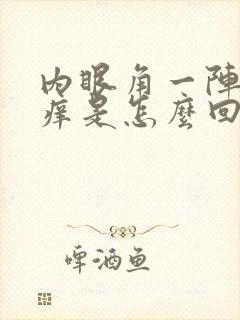 内眼角一陣
痒是怎麼回
啤酒鱼